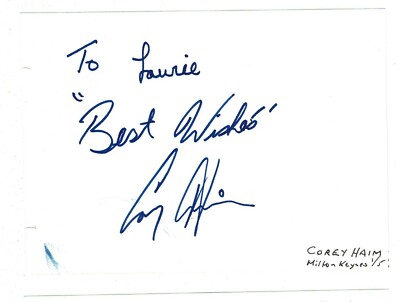 To Laurie
"Best Wishes"
Corey Haim
COREY HAIM
Milton Keynes 1/5